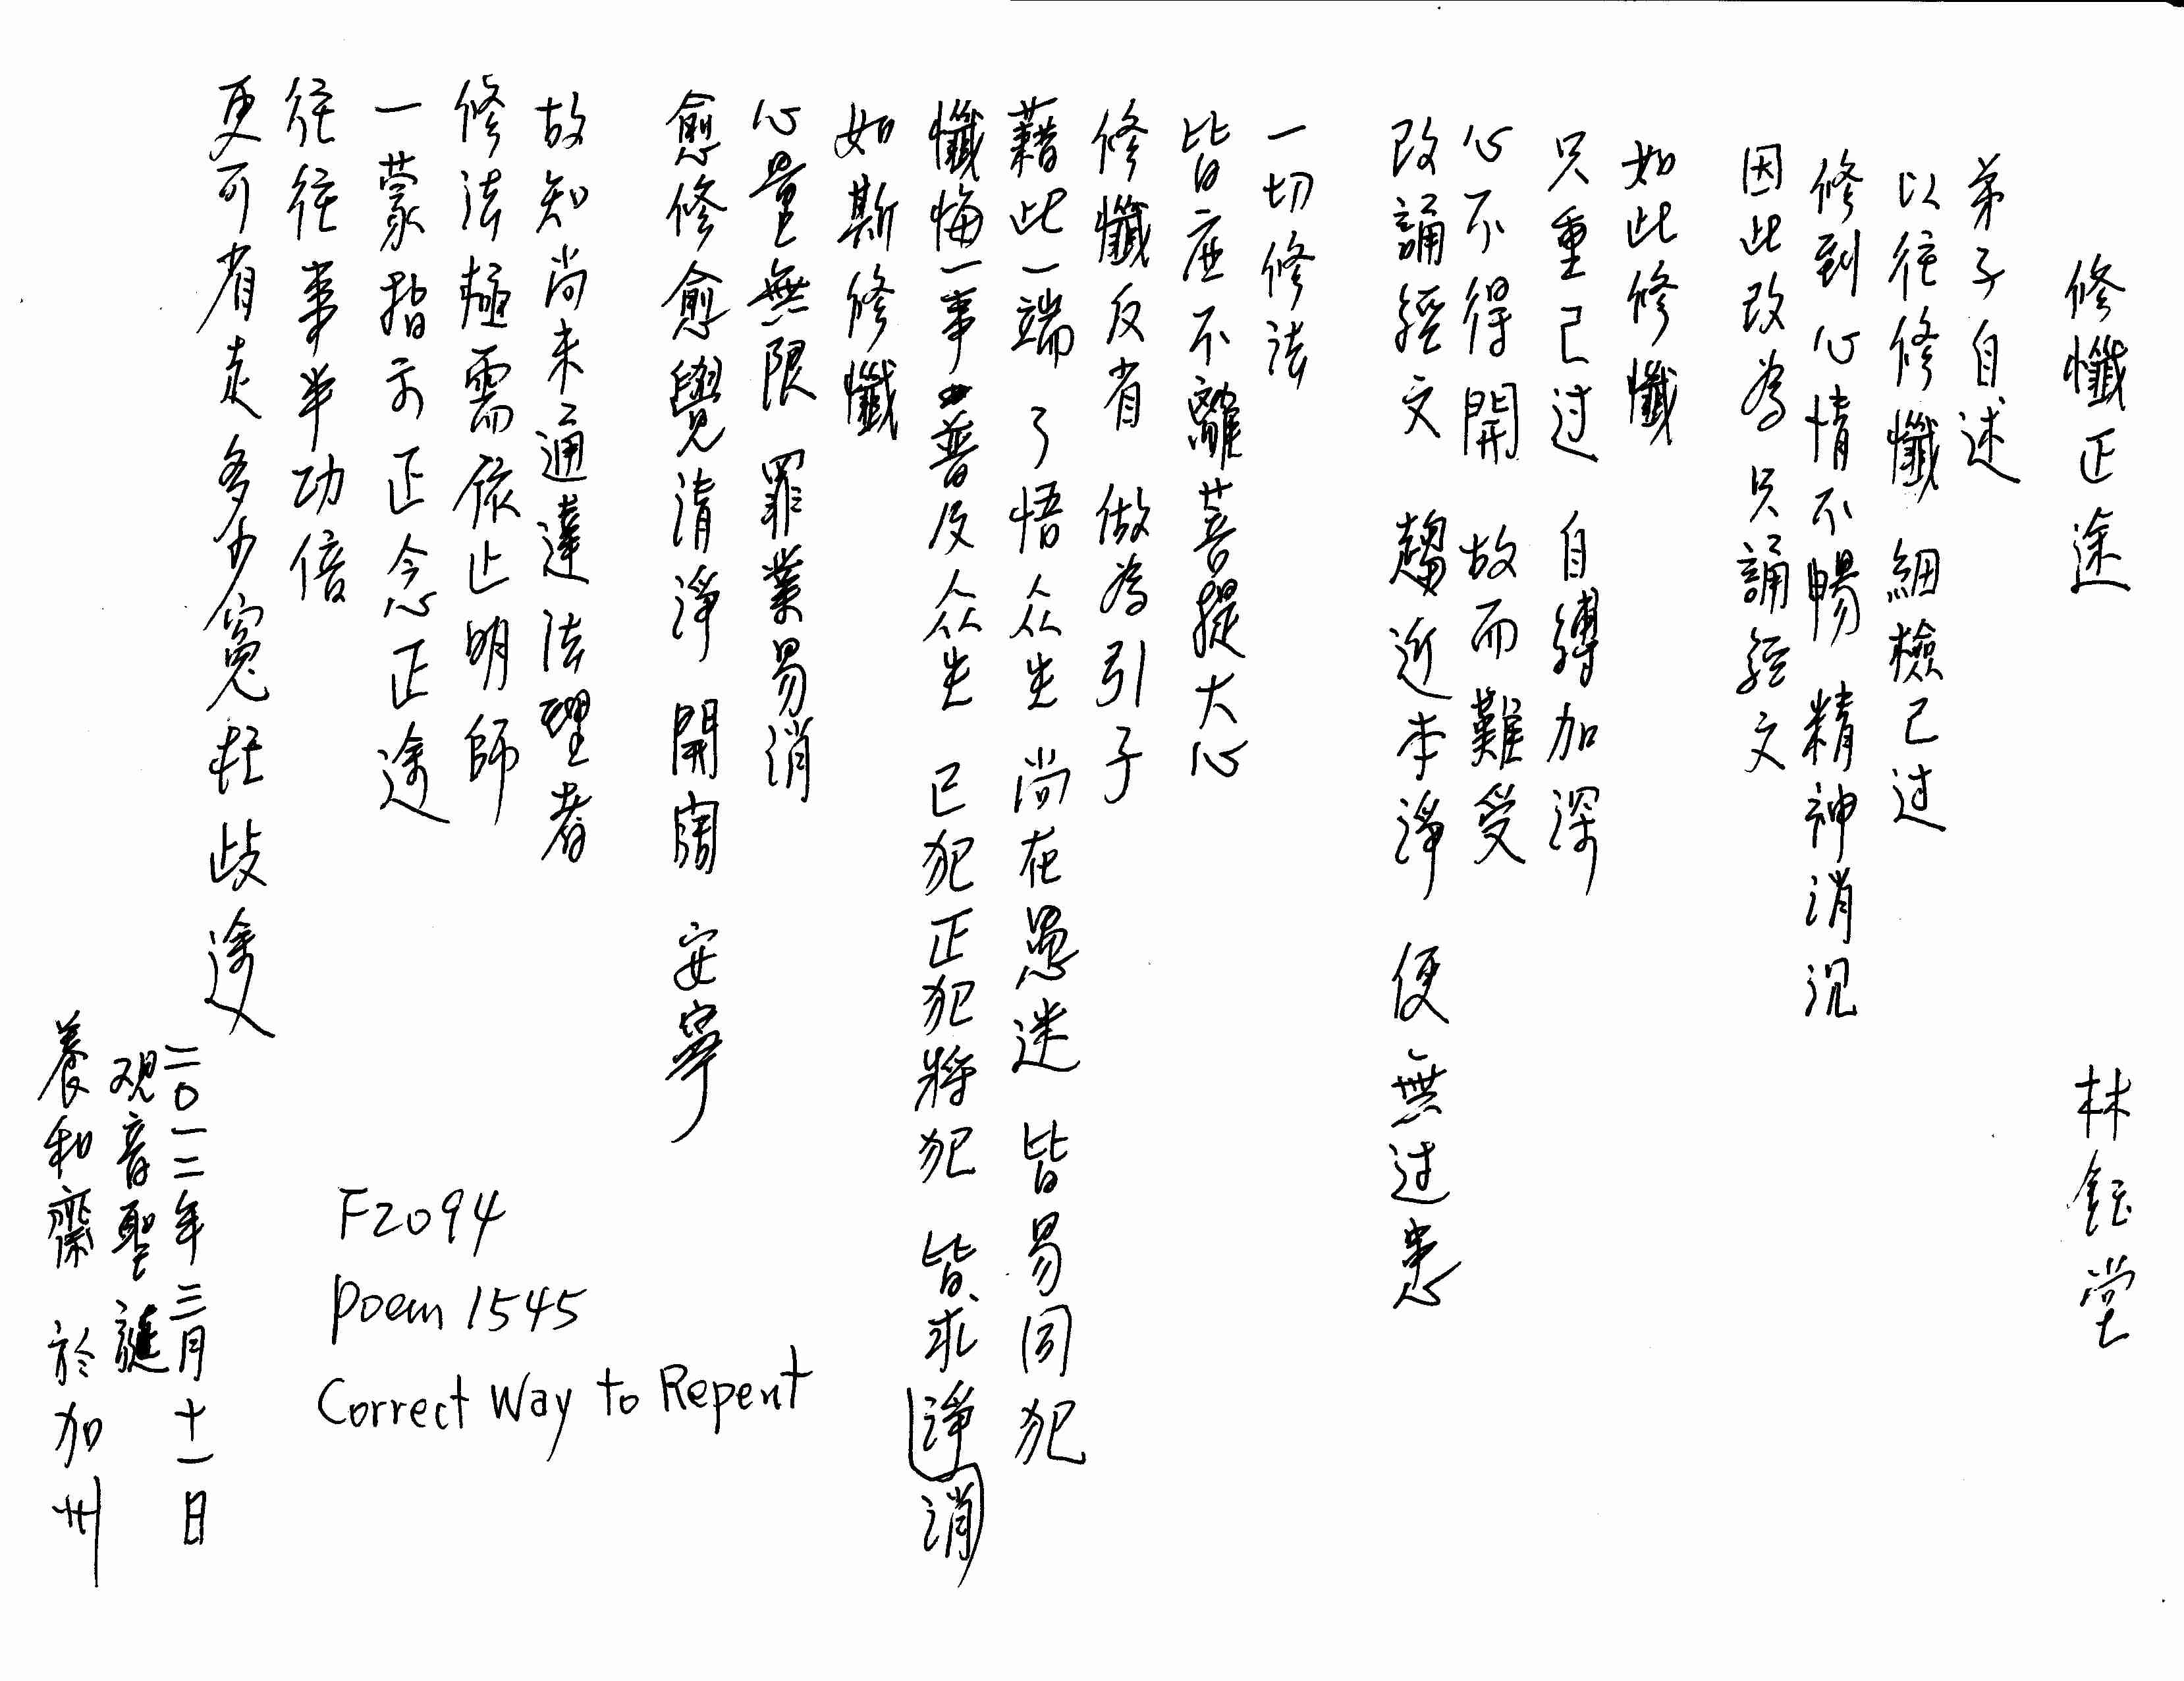 修懺正途 林鈺堂
弟子自述
以往修懺 細檢己过
修到心情不暢 精神消沉
因此改為 只誦经文
如此修懺
只重己过 自縛加深
心不得開 故而難受
改誦経文 趨近本淨 便無过患
一切修法
皆应不離菩提大心
修懺反省 做為引子
藉此一端 了悟众生 尚在愚迷 皆易同犯
懺悔一事 普及众生 已犯正犯將犯 皆求淨消
如斯修懺
心量無限 罪業易消
愈修愈覺清淨 開闊 安寧
故知尚未通達法理者
修法極需依止明師
一蒙指示正念正途
往往事半功倍
更可省走多少冤枉歧途
二〇一二年三月十一日
观音聖誕
養和齋 於加州
F2094
Poem 1545
Correct Way to Repent